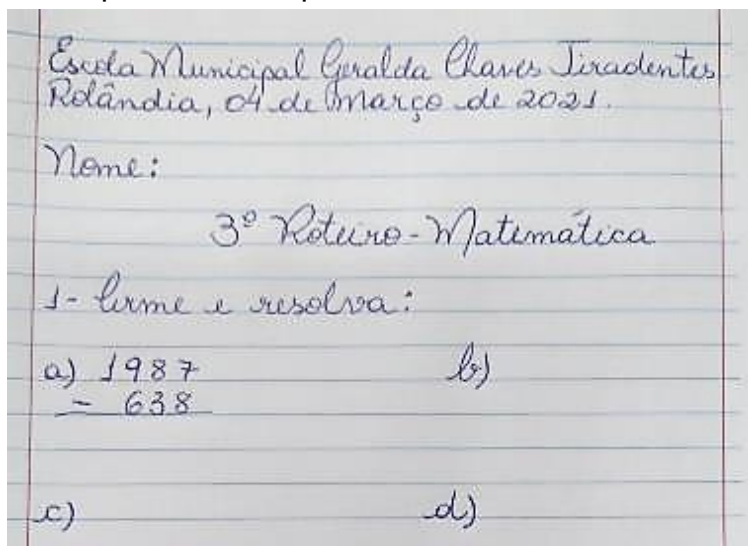 Escola Municipal Geralda Chaves Tiradentes
Rolândia, 04 de março de 2021.
Nome:
3º Roteiro - Matemática
1- Arme e resolva:
a) 1987 b)
- 638
c) d)